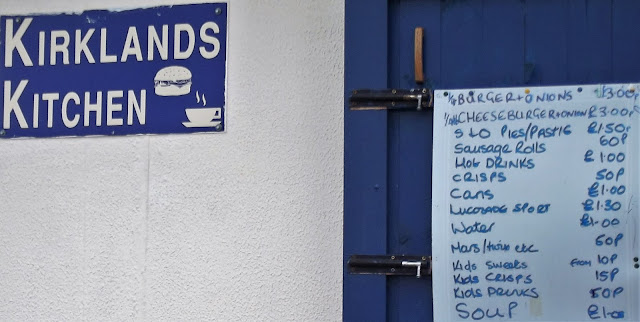 KIRKLANDS
KITCHEN
1/4 BURGER + ONIONS £3.00
1/4 CHEESEBURGER + ONION £3.00
PIES/PASTIE £1.50
SAUSAGE ROLLS 60P
HOT DRINKS £1.00
CRISPS 50P
CANS £1.00
LUCOZADE SPORT £1.30
WATER £1.00
MARS/TWIX ETC 60P
KIDS SWEETS FROM 10P
KIDS CRISPS 15P
KIDS DRINKS 50P
SOUP